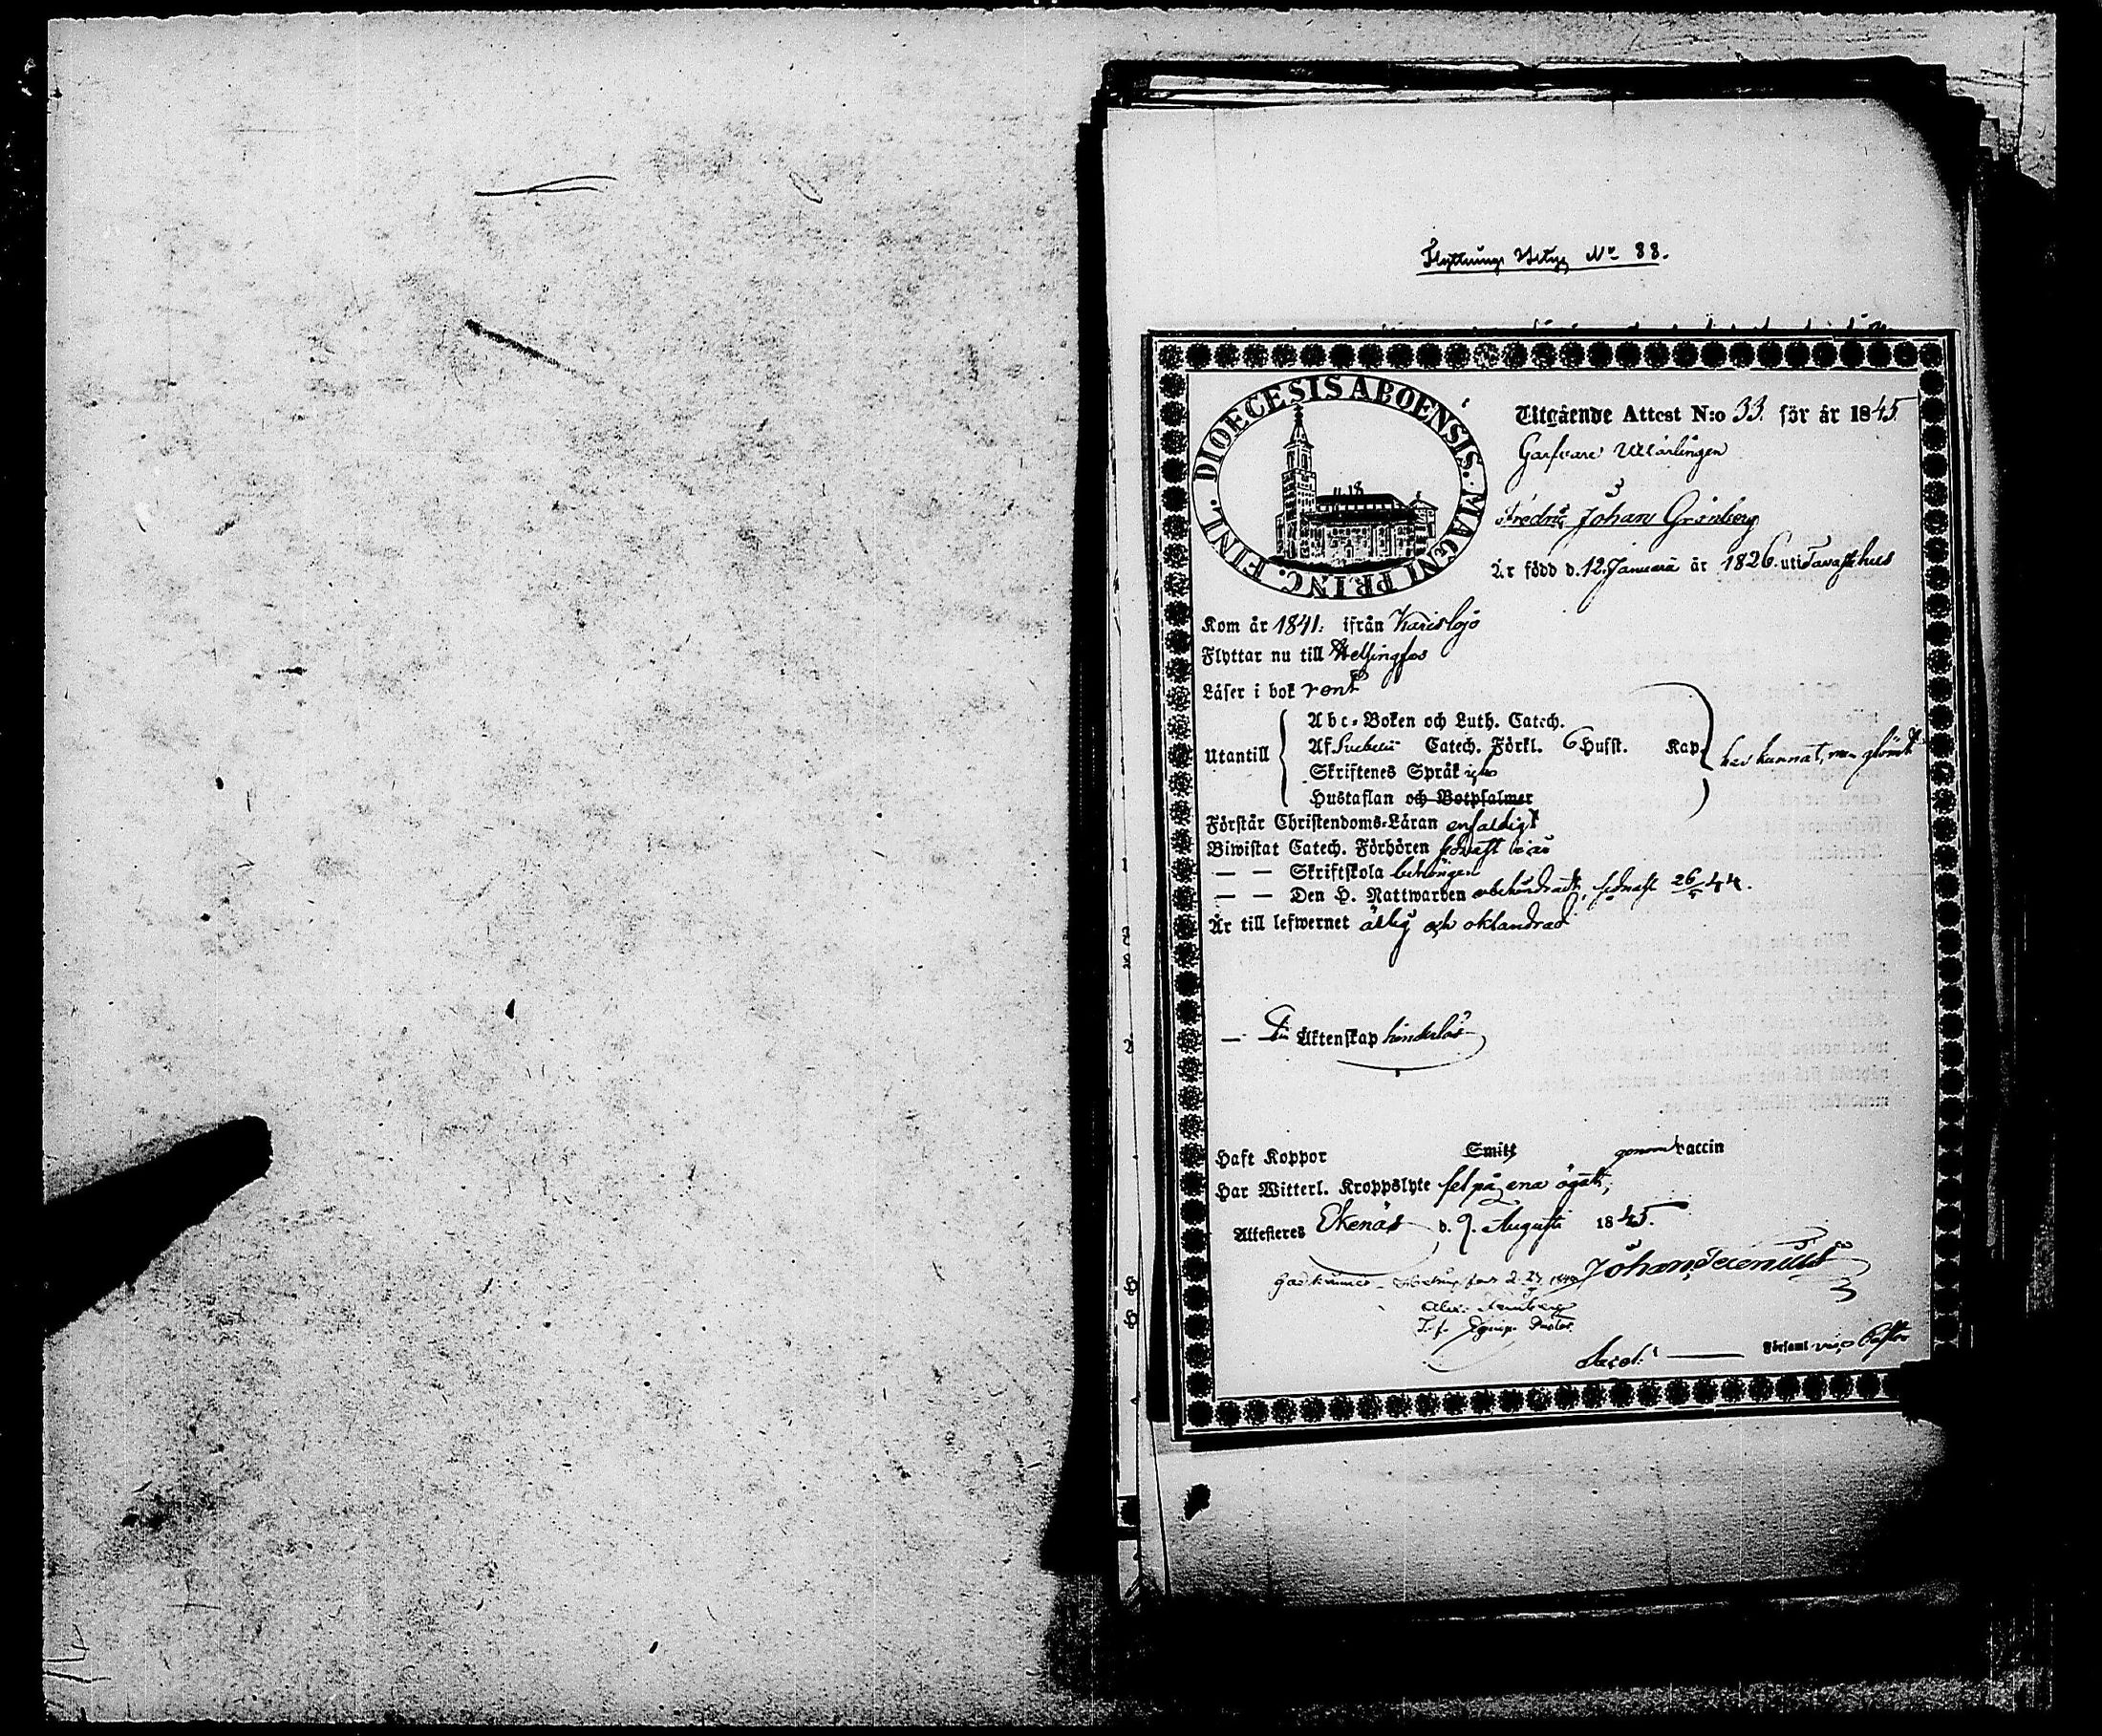 Flyttnings Betyg No 88.
DIOECESIS ABOENSIS. MAGNI PRINC. FINL.
Utgående Attest N:o 33. för år 1845
Garfvare Utlärlingen
Fredric Johan Grönberg
Är född d. 12. Januarii år 1826. uti Tavastehus
Kom år 1841. ifrån Karislojo
Flyttar nu till Helsingfors
Läser i bok rent
Utantill
Abc-Boken och Luth. Catech.
Af Svebelii Catech. Förkl. 6 Husst. Kap.
Skriftenes Språk
Hustaflan och Botpsalmer
har kunnat, men glömt
Förstår Christendoms-Läran enfaldigt
Biwistat Catech. Förhören sednast
— — Skriftskola behörigen
— — Den H. Nattwarden obehindradt, sednast 26/5 44.
Är till lefwernet ärlig och oklandrad
— Till Äktenskap hinderlös
Haft Koppor Smitt genom vaccin
Har Witterl. Kroppslyte fel på ena ögat,
Attesteres Ekenäs d. 9. Augusti 1845.
Johan
Församl vice Pastor